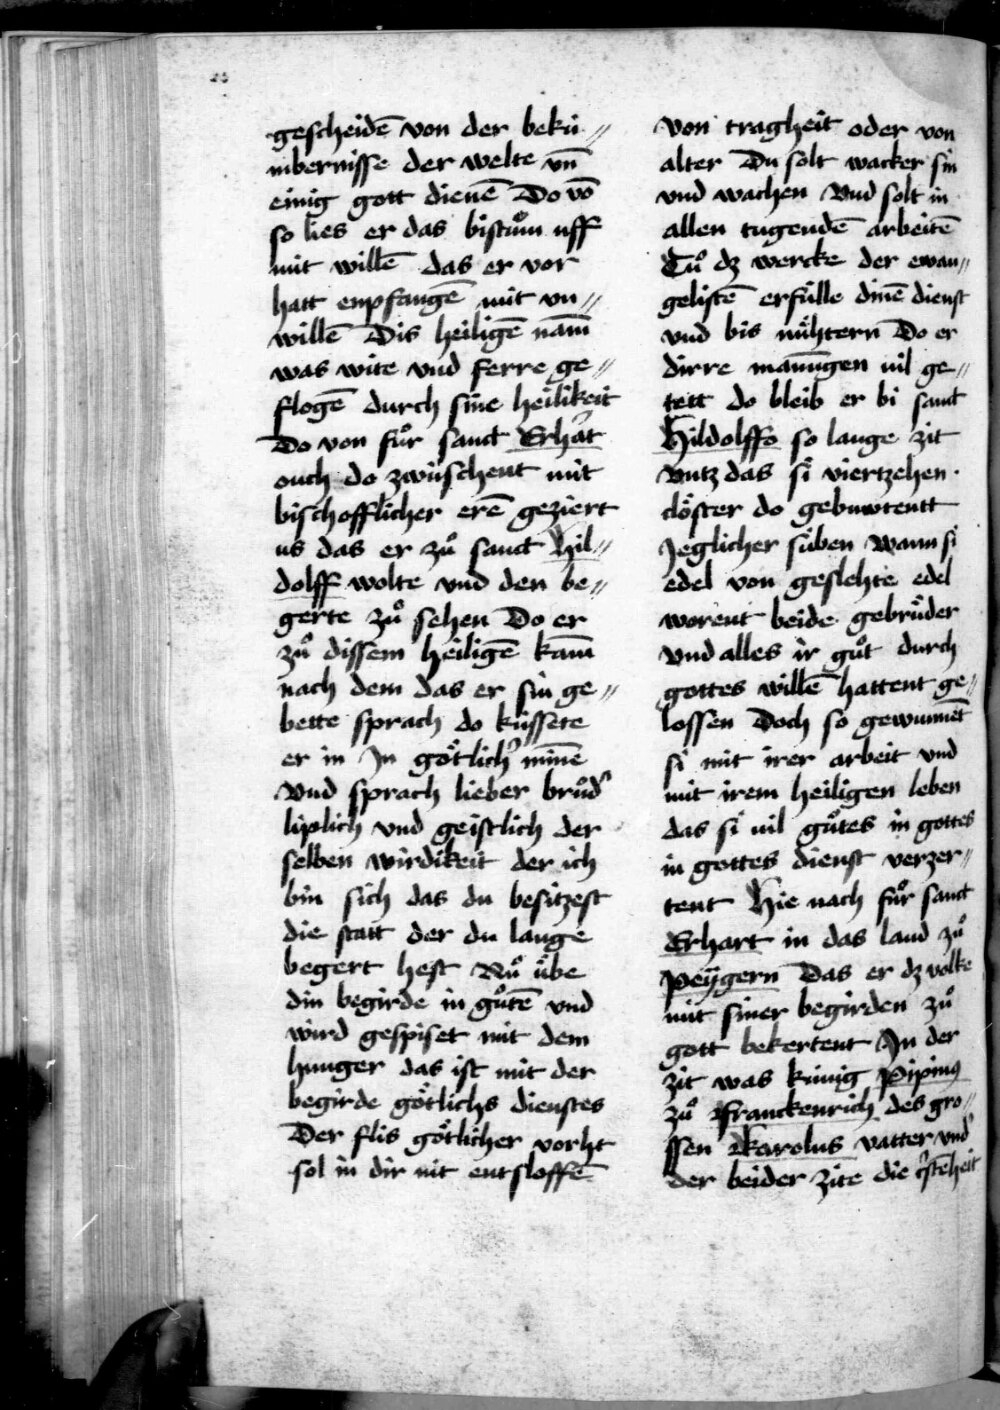 gescheidē von der bekú⸗
mbernisse der welte vn̄
einig gott dienē Do vō
so lies er das bistuͦm uff
mit willē das er vor
hatt enpfangē mit vn⸗
willē Dis heiligē nam̄
was wite vnd ferre ge⸗
flogē durch sine heilikeit
Do von fuͦr sanct Erhʼat
ouch do zwúschent mit
bischofflicher erē geziert
us das er zuͦ sanct Hil⸗
dolff wolte vnd den be⸗
gerte zuͦ sehen Do er
zuͦ dissem heiligē kam̄
nach dem das er sin ge⸗
bette sprach do kússete
er in Jn goͤtlichʼ minē
Vnd sprach lieber bruͦdʼ
liplich vnd geistlich der
selben wirdikeit der ich
bin sich das du besitzest
die statt der du lange
begert hest Nuͦ uͤbe
din begirde in guͦtē vnd
wird gespiset mit dem
hunger das ist mit der
begirde goͤtlichs dienstes
Der flis goͤtlicher vorht
sol in dir nit entsloffē
von tragheit oder von
alter Du solt wacker sin
vnd wachen Vnd solt in
allen tugendē arbeitē
Tuͦ dz wercke der ewan⸗
gelistē erfúlle dinē dienst
vnd bis nuͤhtern Do er
dirre manūgen vil ge⸗
tett do bleib er bi sanct
Hildolffo so lange zit
Vntz das si viertzehen
cloͤster do gebuwtentt
Jeglicher súben Wann si
edel von geslehte edel
worent beide gebruͤder
vnd alles ir guͦt durch
gottes willē hattent ge⸗
lossen Doch so gewunnēt
si mit irer arbeit vnd
mit irem heiligen leben
das si vil guͦtes in gottes
in gottes dienst verzer⸗
tent Hie nach fuͦr sanct
Erhart in das land zuͦ
Peÿgern Das er dz volke
mit siner begirden zuͦ
gott bekertent Jn der
zit was kúnig Pipinꝰ
zuͦ Franckenrich des gro⸗
ssen Karolus vatter vndʼ
der beider zite die cʼstēheit